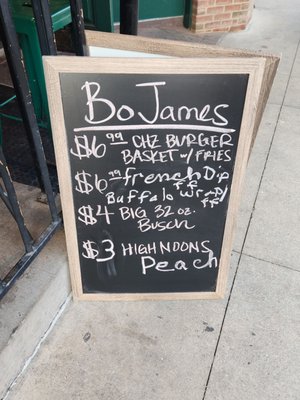 BoJames
$6.99 CHZ BURGER
BASKET w/ FRIES
$6.99 french Dip
Buffalo Wrap/
FF FF
$4 BIG 32 oz.
Busch
$3 HIGH NOONS
Peach